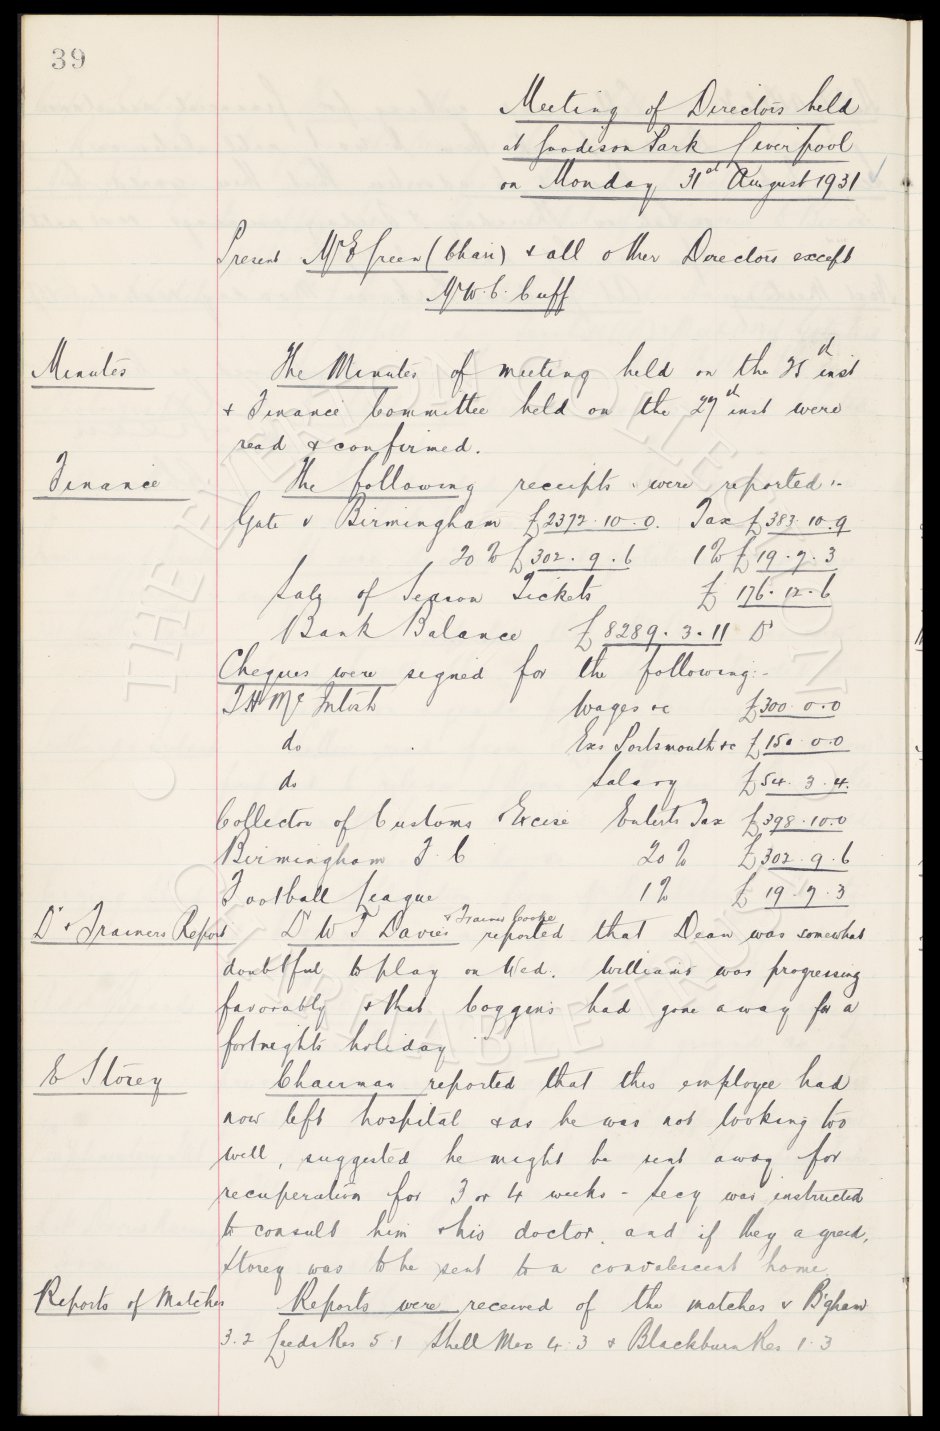 39
Meeting of Directors held
at Goodison Park Liverpool
on Monday 31st August 1931
Present Mr E Green (Chair) & all other Directors except
Mr W. C. Cuff
Minutes
The Minutes of meeting held on the 25th inst
& Finance Committee held on the 27th inst were
read & confirmed.
Finance
The following receipts were reported :-
Gate v Birmingham £2372.10.0. Tax £383.10.9
20% £302.9.6 1% £19.7.3
Sale of Season Tickets £176.12.6
Bank Balance £8289.3.11 Dr
Cheques were signed for the following:-
T H McIntosh Wages &c £300.0.0
do Exs Portsmouth &c £150.0.0
do Salary £54.3.4.
Collector of Customs & Excise Enterts Tax £398.10.0
Birmingham F. C 20% £302.9.6
Football League 1% £19.7.3
Dr & Trainers Report
Dr W T Davies & Trainer Cooke reported that Dean was somewhat
doubtful to play on Wed. Williams was progressing
favorably & that Coggins had gone away for a
fortnights holiday
E Storey
Chairman reported that this employee had
now left hospital & as he was not looking too
well, suggested he might be sent away for
recuperation for 3 or 4 weeks - Secy was instructed
to consult him & his doctor. and if they agreed,
Storey was to be sent to a convalescent home
Reports of Matches
Reports were received of the matches v B'gham
3.2 Leeds Res 5.1 Shell Mex 4.3 & Blackburn Res 1.3
THE EVERTON COLLECTION
CHARITABLE TRUST